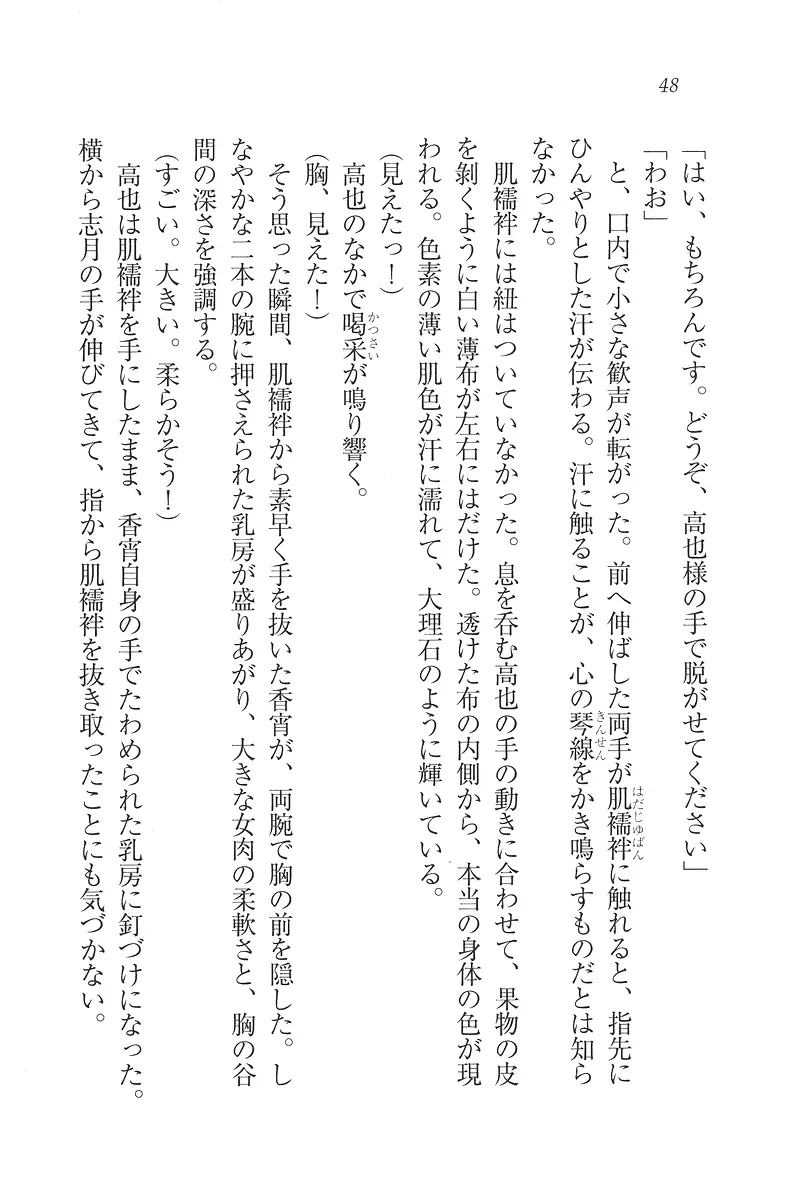 48
「はい、もちろんです。どうぞ、高也様の手で脱がせてください」
「わお」
と、口内で小さな歓声が転がった。前へ伸ばした両手が肌襦袢に触れると、指先に
ひんやりとした汗が伝わる。汗に触ることが、心の琴線をかき鳴らすものだとは知ら
なかった。
肌襦袢には紐はついていなかった。息を呑む高也の手の動きに合わせて、果物の皮
を剥くように白い薄布が左右にはだけた。透けた布の内側から、本当の身体の色が現
われる。色素の薄い肌色が汗に濡れて、大理石のように輝いている。
（見えたっ！）
高也のなかで喝采が鳴り響く。
（胸、見えた！）
そう思った瞬間、肌襦袢から素早く手を抜いた香宵が、両腕で胸の前を隠した。し
なやかな二本の腕に押さえられた乳房が盛りあがり、大きな女肉の柔軟さと、胸の谷
間の深さを強調する。
（すごい。大きい。柔らかそう！）
高也は肌襦袢を手にしたまま、香宵自身の手でたわめられた乳房に釘づけになった。
横から志月の手が伸びてきて、指から肌襦袢を抜き取ったことにも気づかない。
はだじゅばん
きんせん
かつさい